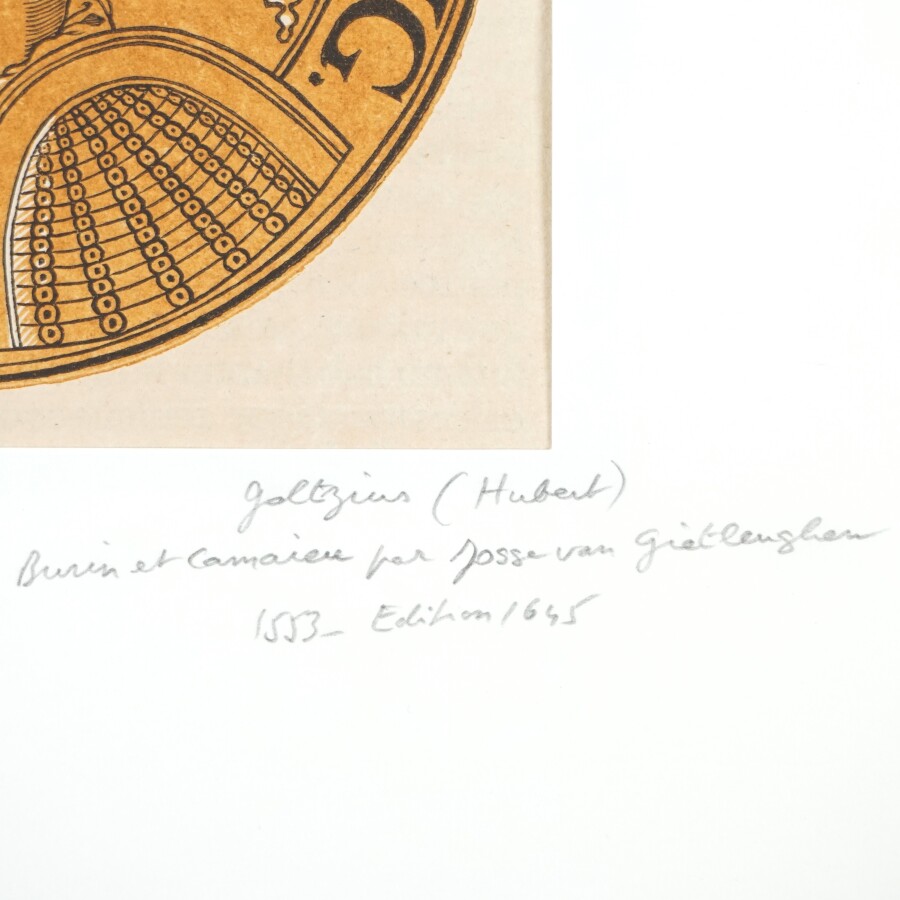 G.
Goltzius (Hubert)
Burin et Camaieu par Josse van Gietlenghen
1553_ Edition 1645